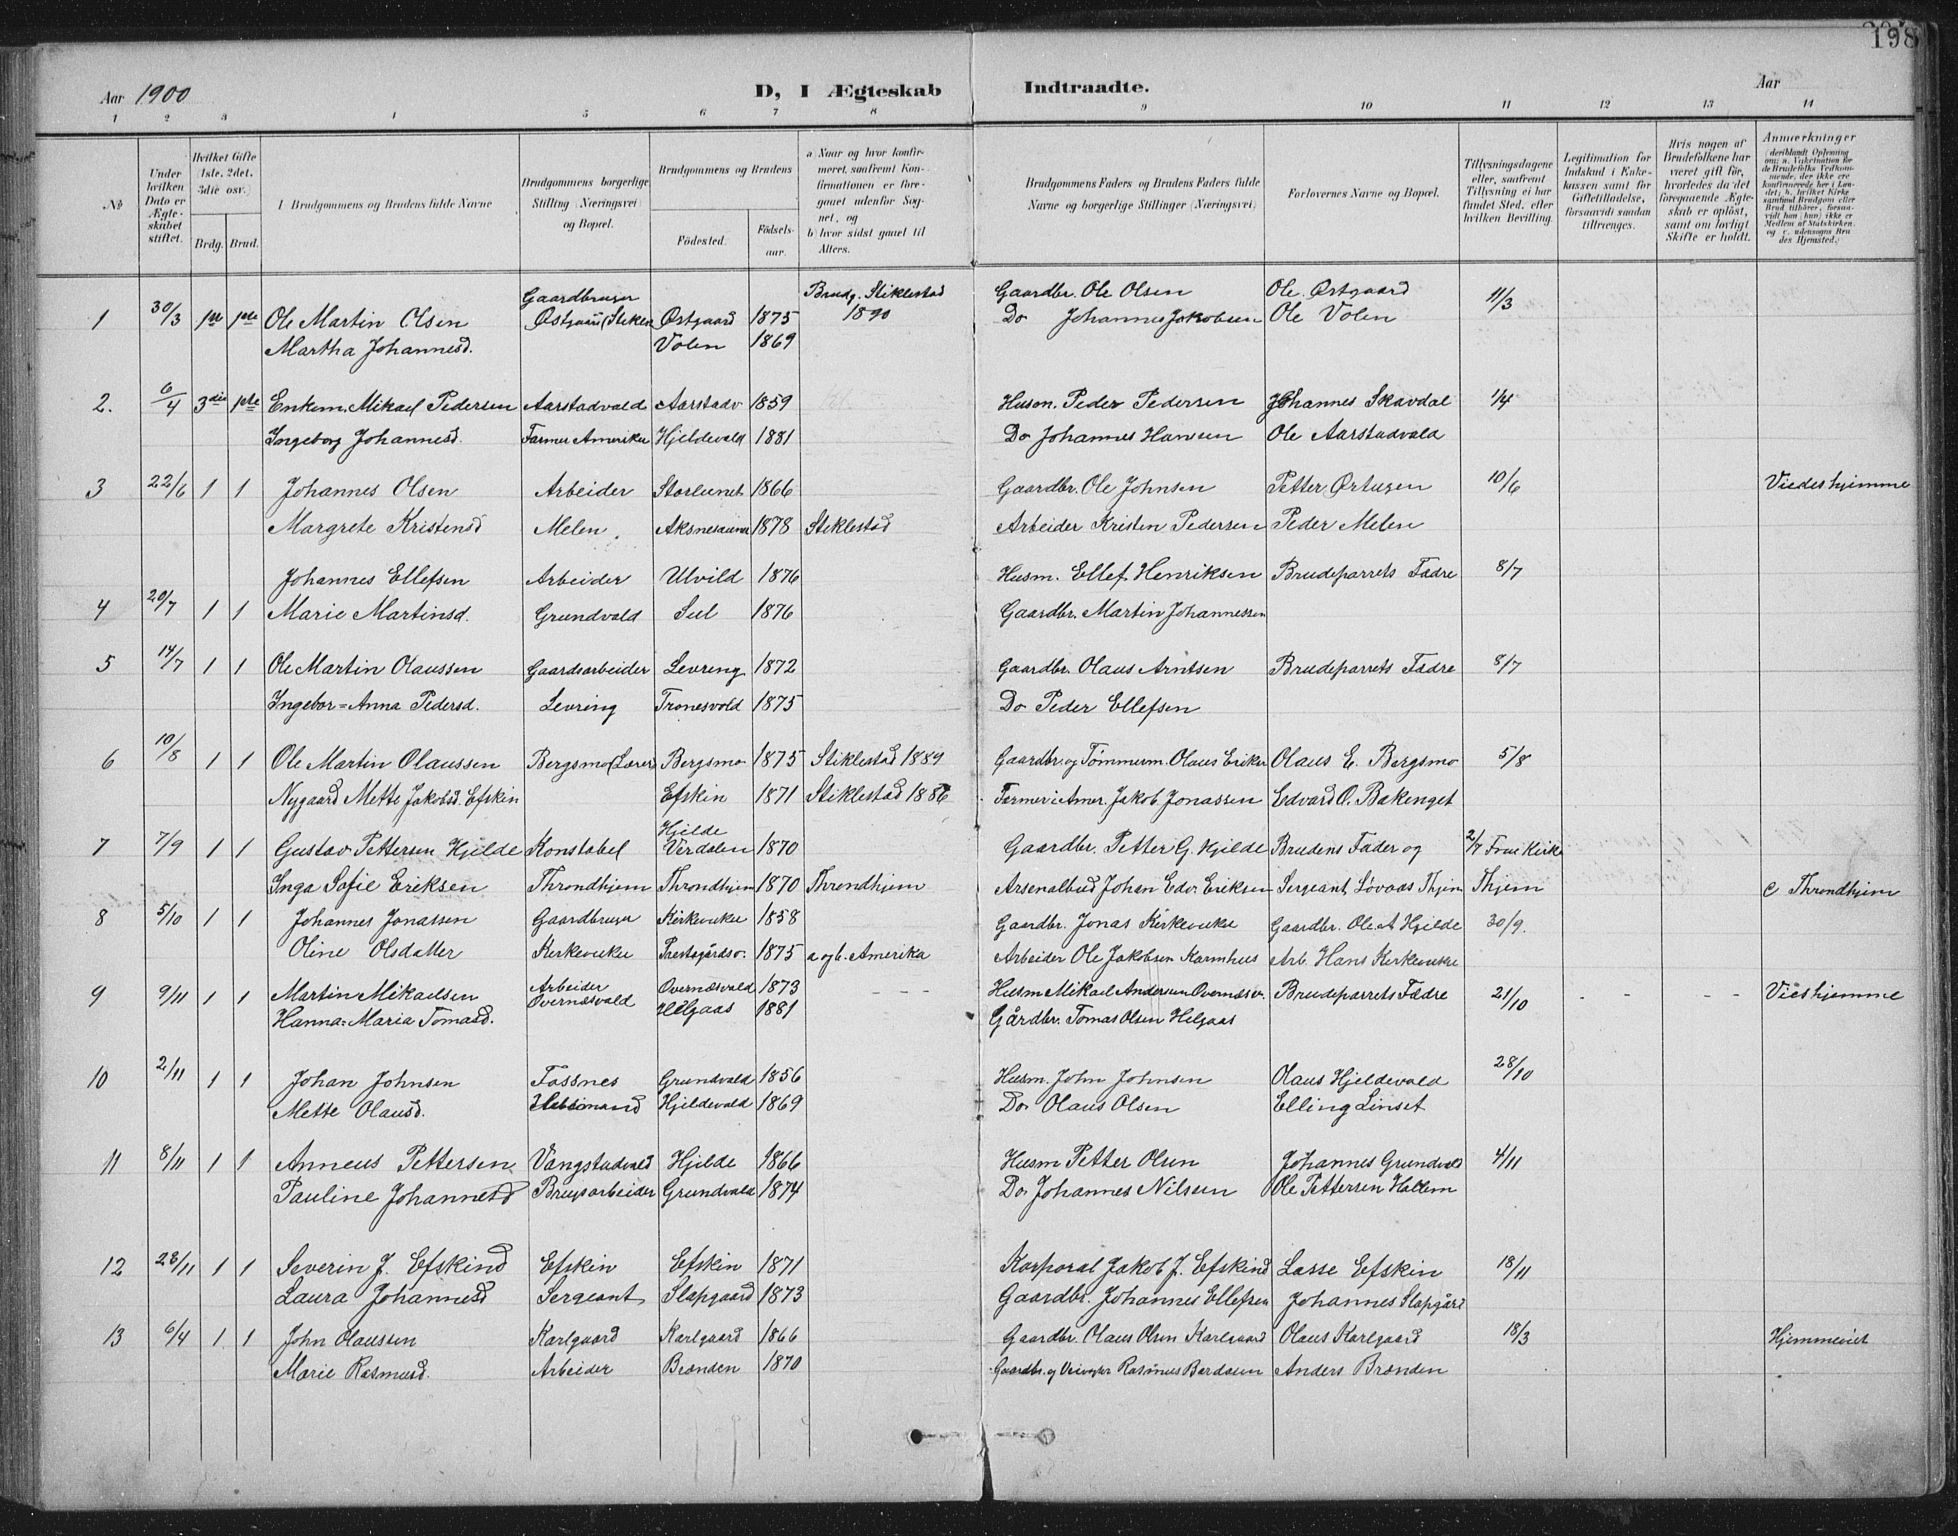 198
Aar 1900 D, I Ægteskab Indtraadte. Aar
1 2 3 4 5 6 7 8 9 10 11 12 13 14
№
Under hvilken Dato er Ægteskabet stiftet.
Hvilket Gifte (1ste, 2det, 3die osv.)
Brdg. Brud.
Brudgommens og Brudens fulde Navne
Brudgommens borgerlige Stilling (Næringsvei) og Bopæl.
Brudgommens og Brudens
Fødested. Fødselsaar.
a) Naar og hvor konfirmeret, saafremt Konfirmationen er foregaaet udenfor Sognet, og
b) hvor sidst gaaet til Alters.
Brudgommens Faders og Brudens Faders fulde Navne og borgerlige Stillinger (Næringsvei)
Forlovernes Navne og Bopæl.
Tillysningsdagene eller, saafremt Tillysning ei har fundet Sted, efter hvilken Bevilling.
Legitimation for Indskud i Enkekassen samt for Giftetilladelse, forsaavidt saadan tiltrænges.
Hvis nogen af Brudefolkene har været gift før, hvorledes da det foregaaende Ægteskab er opløst, samt om lovligt Skifte er holdt.
Anmærkninger
Gaardbruger Brudg. Stiklestad Gaardbr. Ole Olsen Ole Østgaard 11/3
1 30/3 Ole Martin Olsen Østgaard 1875 1890 Do Johannes Jakobsen Ole Volen
Martha Johannesd. Volen 1869
2. 6/4 3die 1ste Enkem. Mikael Pedersen Aarstadvald Aarstadv 1859 Husm. Peder Pedersen Johannes Skavdal 1/4
Ingeborg Johannesd. Farmer Amerika Hjeldevald 1881 Do Johannes Hansen Ole Aarstadvald
3 22/6 1 1 Johannes Olsen Arbeider Storlunet 1866 Gaardbr. Ole Johnsen Petter Ørtugen 10/6 Viedes hjemme
Margrete Kristensd Melen Aksnes 1878 Stiklestad Arbeider Kristen Pedersen Peder Melen
Johannes Ellefsen Arbeider Ulvild 1876 Husm. Ellef Henriksen Brudeparrets Fædre 8/7
4 20/7 1 1 Marie Martinsd. Grundvald Sul 1876 Gaardbr. Martin Johannessen
5 14/7 1 1 Ole Martin Olaussen Gaardsarbeider Levring 1872 Gaardbr. Olaus Arntsen Brudeparrets Fædre 8/7
Ingebor=Anna Pedersd. Levring Tronesvold 1875 Do Peder Ellefsen
6 10/8 1 1 Ole Martin Olaussen Bergsmo (Lærer Bergsmo 1875 Stiklestad 1889 Gaardbr. og Tømmerm. Olaus Eriksn Olaus E. Bergsmo 5/8
Nygaard Mette Jakobsd. Efskin Efskin 1871 Stiklestad 1886 Farmer i Amer. Jakob Jonassen Edvard O. Bakenget
7 7/9 1 1 Gustav Pettersen Hjelde Konstabel Hjelde Verdalen 1870 Gaardbr. Petter G. Hjelde Brudens Fader og 2/9 Frue Kirke
Inga Sofie Eriksen Throndhjem Throndhjem 1870 Throndhjem Arsenalbud Johan Edv. Eriksen Sergeant Løvaas Thjem Thjem c Throndhjem
8 5/10 1 1 Johannes Jonassen Gaardbruger Kirkevuku 1858 Gaardbr. Jonas Kirkevuku Gaardbr. Ole A Hjelde 30/9.
Oline Olsdatter Kirkevuku 1875 a og b. Amerika Arbeider Ole Jakobsen Karmhus Arb. Hans Kirkevuku
9 9/11 1 1 Martin Mikaelsen Arbeider Overnæsvald Overnæsvald 1873 - - - Husm Mikael Andersen Overnæsv. Brudeparrets Fædre 21/10 - - - - Vies hjemme
Hanna=Maria Tomasd. Helgaas 1881 Gårdbr. Tomas Olsen Helgaas
10 2/11 1 1 Johan Johnsen Fossnes Grundvald 1856 Husm. John Johnsen Olaus Hjeldevald 28/10
Mette Olausd. Hjeldevald 1869 Do Olaus Olsen Elling Linset
11 8/11 1 1 Anneus Pettersen Vangstadvald Hjelde 1866 Husm Petter Olsen Johannes Grundvald 4/11
Pauline Johannesd Brugsarbeider Grundvald 1874 Do. Johannes Nilsen Ole Pettersen Hallem
12 23/11 1 1 Severin J. Efskind Efskin Efskin 1871 Korporal Jakob J. Efskind Lasse Efskin 18/11
Laura Johannesd Sergeant Slapgaard 1873 Gaardbr. Johannes Ellefsen Johannes Slapgård
13 6/4 1 1 John Olaussen Karlgaard Karlgaard 1866 Gaardbr. Olaus Olsen Karlgaard Olaus Karlgaard 18/3 Hjemmeviet
Marie Rasmusd. Arbeider Brænden 1870 Gaardbr. og Rasmus Bardosen Anders Brænden